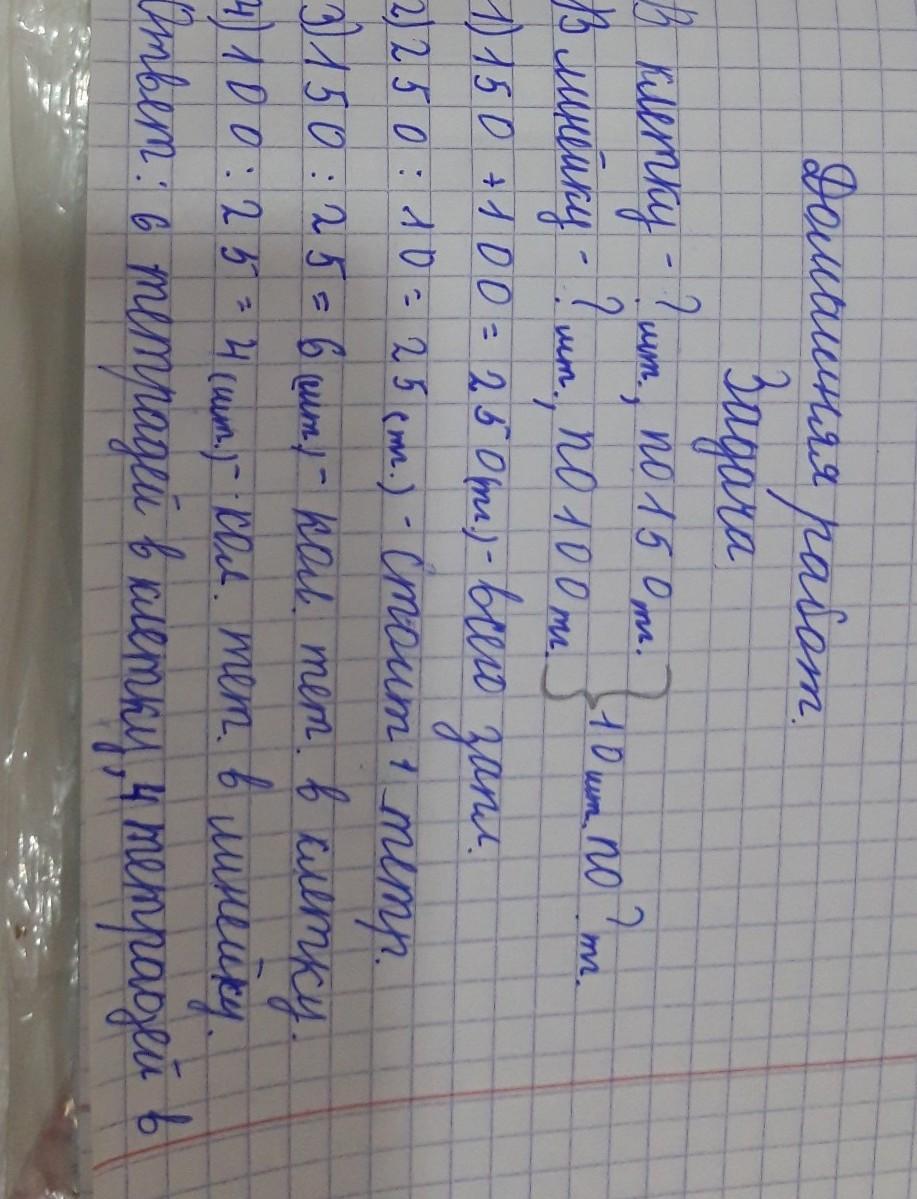 Домашняя работ.
Задача.
В клетку - ? шт., по 150 тг.
10 шт. по ? тг.
В линейку - ? шт., по 100 тг.
1) 150 + 100 = 250 (тг.) - всего запл.
2) 250 : 10 = 25 (тг.) - Стоит 1 тетр.
3) 150 : 25 = 6 (шт.) - кол. тет. в клетку.
4) 100 : 25 = 4 (шт.) - кол. тет. в линейку.
Ответ: 6 тетрадей в клетку, 4 тетрадей в